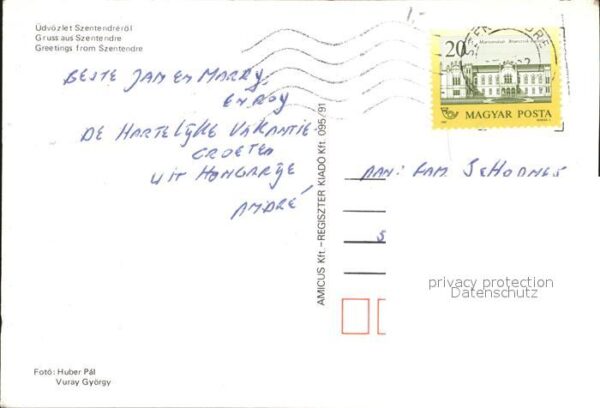 Üdvözlet Szentendréről
Gruss aus Szentendre
Greetings from Szentendre
BESTE JAN EN MARRY
EN ROY
DE HARTELIJKE VAKANTIE
GROETEN
UIT HONGARIJE
ANDRÉ
AMICUS Kft.–REGISZTER KIADÓ Kft. 095/91
1,-
20
MAGYAR POSTA
AAN: FAM SCHOONES
S
privacy protection
Datenschutz
Fotó: Huber Pál
Vuray György